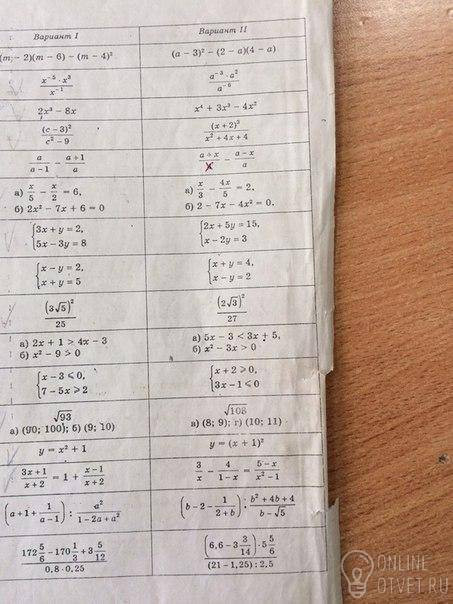 Вариант I Вариант II
(m − 2)(m − 6) − (m − 4)² (a − 3)² − (2 − a)(4 − a)
x⁻⁵ · x³ / x⁻¹ a⁻³ · a² / a⁻⁶
2x³ − 8x x⁴ + 3x³ − 4x²
(c − 3)² / c² − 9 (x + 2)³ / x² + 4x + 4
a / a − 1 − a + 1 / a a + x / x − a − x / a
а) x/5 − x/2 = 6, а) x/3 − 4x/5 = 2,
б) 2x² − 7x + 6 = 0 б) 2 − 7x − 4x² = 0.
{3x + y = 2, {2x + 5y = 15,
5x − 3y = 8 x − 2y = 3
{x − y = 2, {x + y = 4,
x + y = 5 x − y = 2
(3√5)² / 25 (2√3)² / 27
а) 2x + 1 > 4x − 3 а) 5x − 3 < 3x + 5,
б) x² − 9 > 0 б) x² − 3x > 0
{x − 3 ⩽ 0, {x + 2 ⩾ 0,
7 − 5x ⩾ 2 3x − 1 ⩽ 0
√93 √108
а) (90; 100); б) (9; 10) в) (8; 9); г) (10; 11)
y = x² + 1 y = (x + 1)²
3x + 1 / x + 2 = 1 + x − 1 / x + 2 3/x − 4 / 1 − x = 5 − x / x² − 1
(a + 1 + 1 / a − 1) : a² / 1 − 2a + a² (b − 2 − 1 / 2 + b) : b² + 4b + 4 / b − √5
172 5/6 − 170 1/3 + 3 5/12 / 0,8 · 0,25 (6,6 − 3 3/14) · 5 5/6 / (21 − 1,25) : 2,5
ONLINE
OTVET.RU